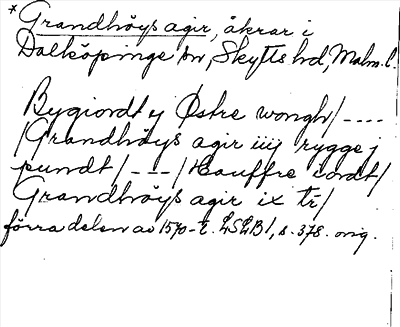 *Grandhöys agir, åkrar i
Dalköpinge sn, Skytts hd, Malm. l.
Bygiordt ej Østre wongh/----
/Grandhöys agir iiij rygge j
pundt/---/Hauffre cordt/
Grandhöys agir ix tr/
förra delen av 1570-t. LSLB1, s. 378. orig.